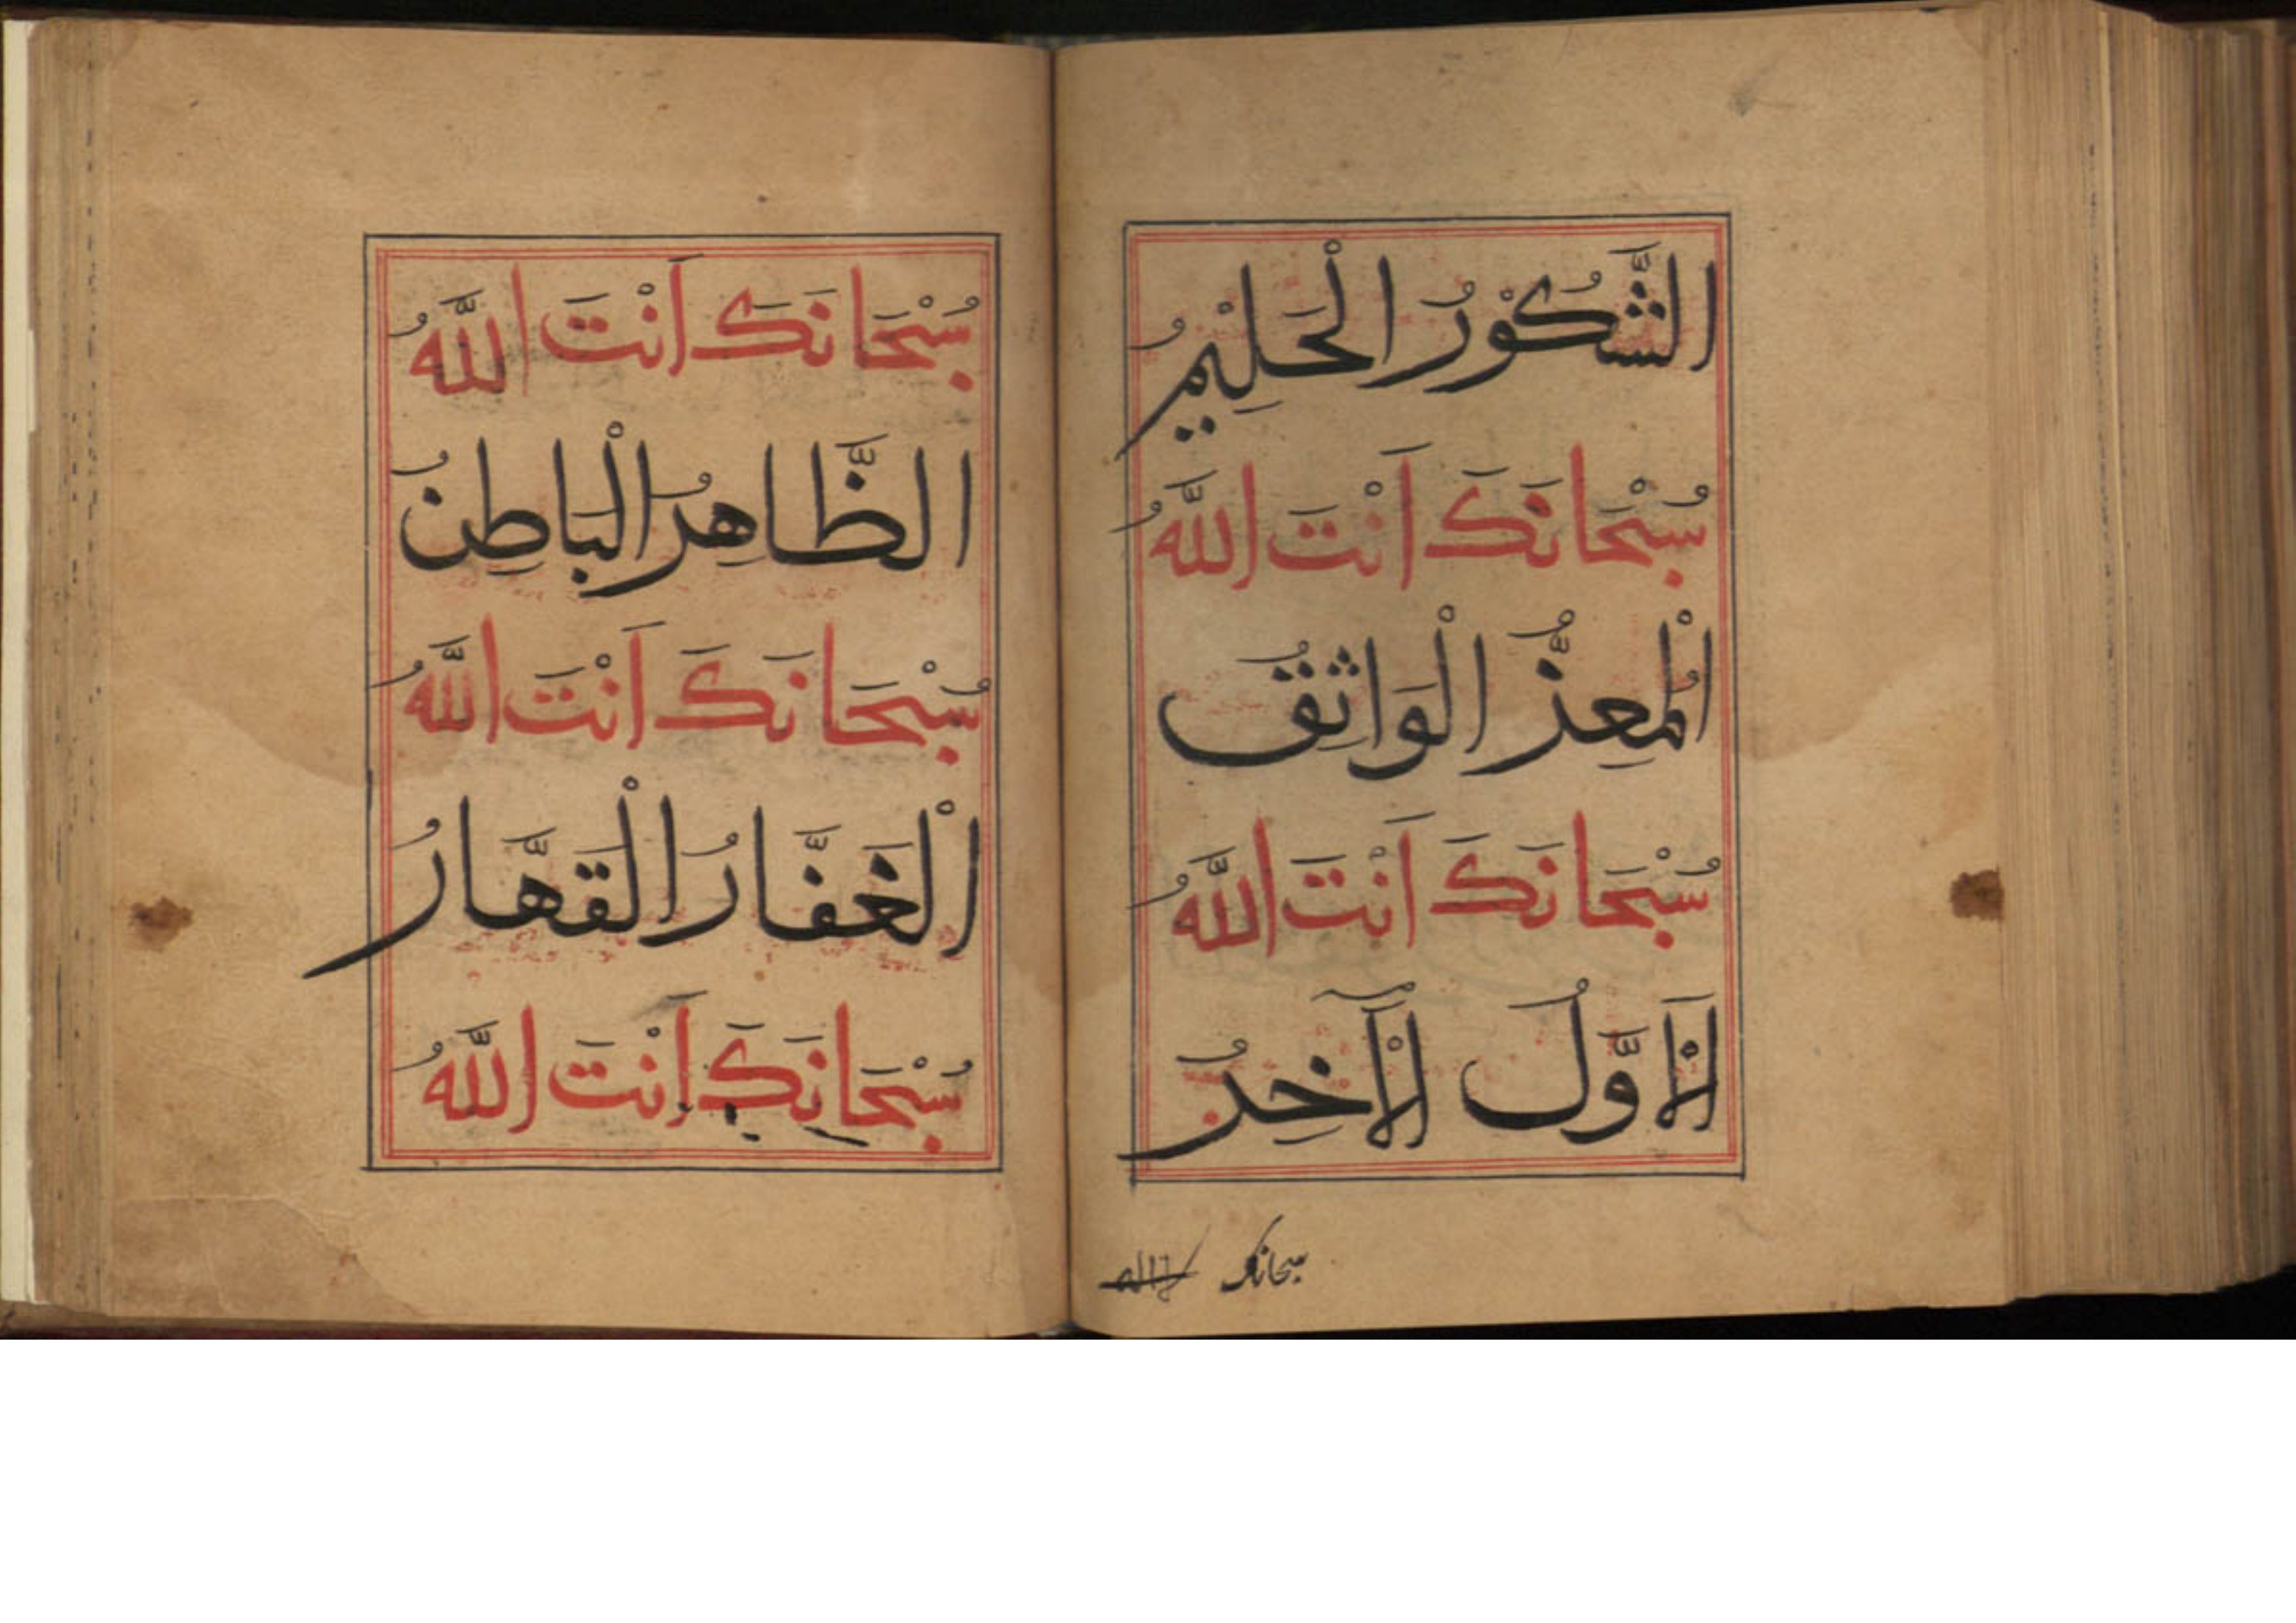 الشَّكُوْرُ الْحَلِيْمُ
سُبْحَانَكَ اَنْتَ اللَّهُ
اَلْمُعِزُّ الْوَاثِقُ
سُبْحَانَكَ اَنْتَ اللَّهُ
اَلْاَوَّلُ الْآخِرُ
سبحانك
سُبْحَانَكَ اَنْتَ اللَّهُ
الظَّاهِرُ الْبَاطِنُ
سُبْحَانَكَ اَنْتَ اللَّهُ
الْغَفَّارُ الْقَهَّارُ
سُبْحَانَكَ اَنْتَ اللَّهُ